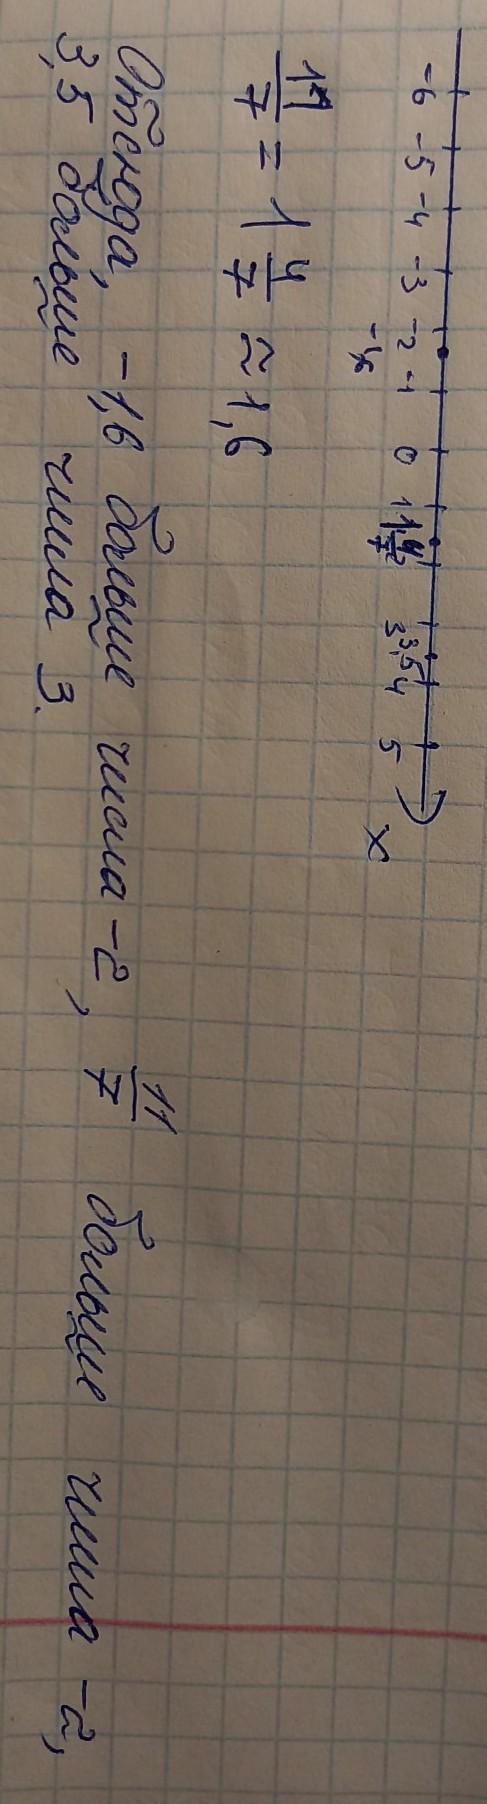 -6 -5 -4 -3 -2 -1 0 1 1 4/7 2 3 3,5 4 5 x
-1,6
11/7 = 1 4/7 ≈ 1,6
Отсюда, -1,6 больше числа -2, 11/7 больше числа -2,
3,5 больше числа 3.